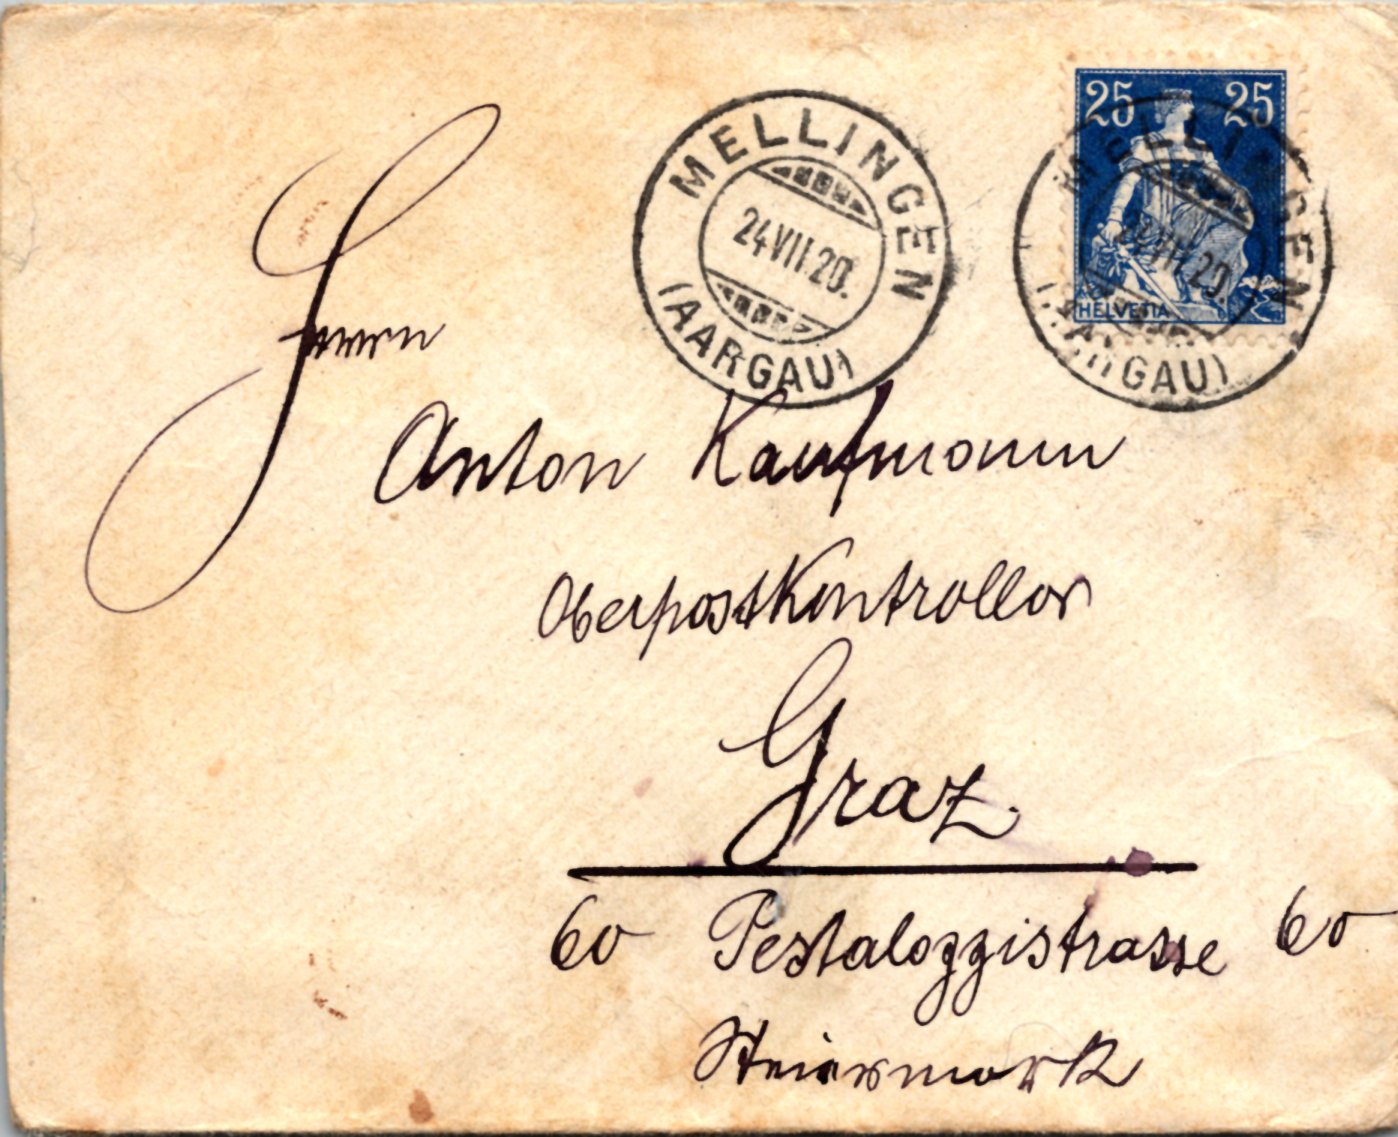 25 25
HELVETIA
MELLINGEN
24 VII 20.
(AARGAU)
MELLINGEN
24 VII 20.
(AARGAU)
Herrn
Anton Kaufmann
Oberpostkontrollor
Graz.
60 Pestalozzistrasse 60
Steiermark